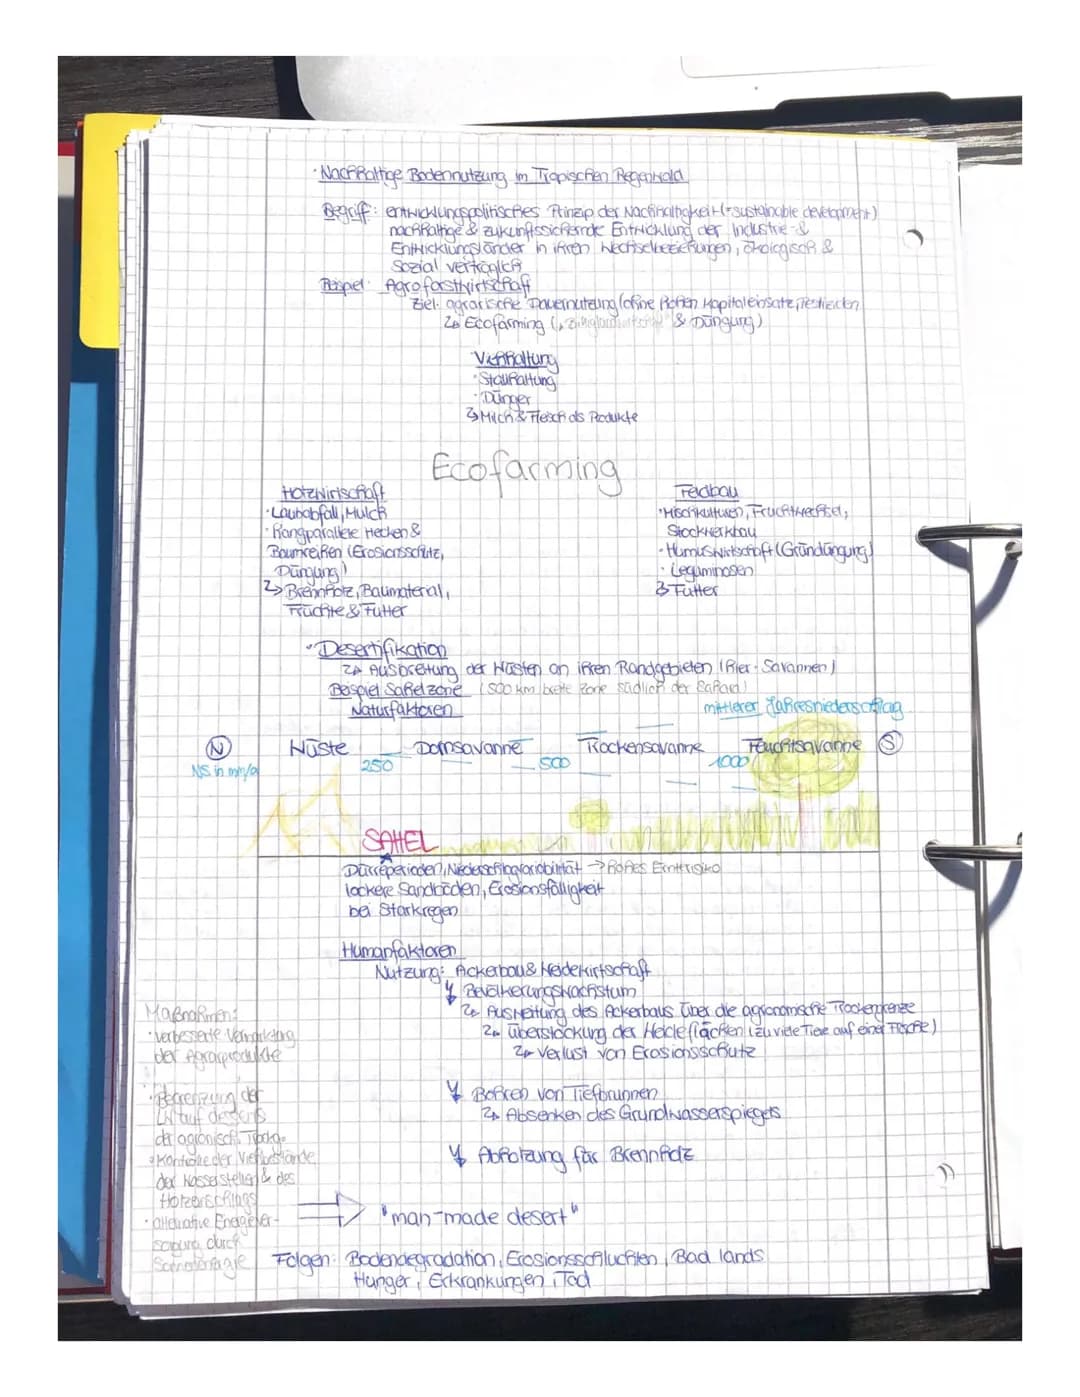 · Nachhaltige Bodennutzung im Tropischen Regenwald
Begriff: entwicklungspolitisches Prinzip der Nachhaltigkeit (= sustainable development)
nachhaltige & zukunftssichernde Entwicklung der Industrie- &
Entwicklungsländer in ihren Wechselbeziehungen, ökologisch &
sozial verträglich
Beispiel: Agroforstwirtschaft
Ziel: agrarische Dauernutzung (ohne hohen Kapitaleinsatz, Pestiziden
↳ Ecofarming ( & Düngung)
Viehhaltung
· Stallhaltung
· Dünger
↳ Milch & Fleisch als Produkte
Ecofarming
Holzwirtschaft
· Laubabfall, Mulch
· hangparallele Hecken &
Baumreihen (Erosionsschutz,
Düngung)
↳ Brennholz, Baumaterial,
Früchte & Futter
Feldbau
· Mischkulturen, Fruchtwechsel,
Stockwerkbau
· Humuswirtschaft (Gründüngung)
· Leguminosen
↳ Futter
· Desertifikation
↳ Ausbreitung der Wüsten an ihren Randgebieten (hier: Savannen)
Beispiel Sahelzone (500 km breite Zone südlich der Sahara)
Naturfaktoren
mittlerer Jahresniederschlag
N Wüste Dornsavanne Trockensavanne Feuchtsavanne S
NS in mm/a 250 500 1000
SAHEL
Dürreperioden, Niederschlagvariabilität → hohes Ernterisiko
lockere Sandböden, Erosionsfälligkeit
bei Starkregen
Humanfaktoren
Nutzung: Ackerbau & Weidewirtschaft
↯ Bevölkerungswachstum
↳ Ausweitung des Ackerbaus über die agronomische Trockengrenze
↳ Überstockung der Weideflächen (zu viele Tiere auf einer Fläche)
↳ Verlust von Erosionsschutz
↯ Bohren von Tiefbrunnen
↳ Absenken des Grundwasserspiegels
↯ Abholzung für Brennholz
⇒ "man-made desert"
Folgen: Bodendegradation, Erosionsschluchten, Bad lands
Hunger, Erkrankungen, Tod
Maßnahmen:
· verbesserte Vermarktung
der Agrarprodukte
· Begrenzung der
LN auf
der
· Kontrolle der Viehbestände,
der Wasserstellen & des
Holzeinschlags
· alternative Energiever-
sorgung durch
Sonnenenergie